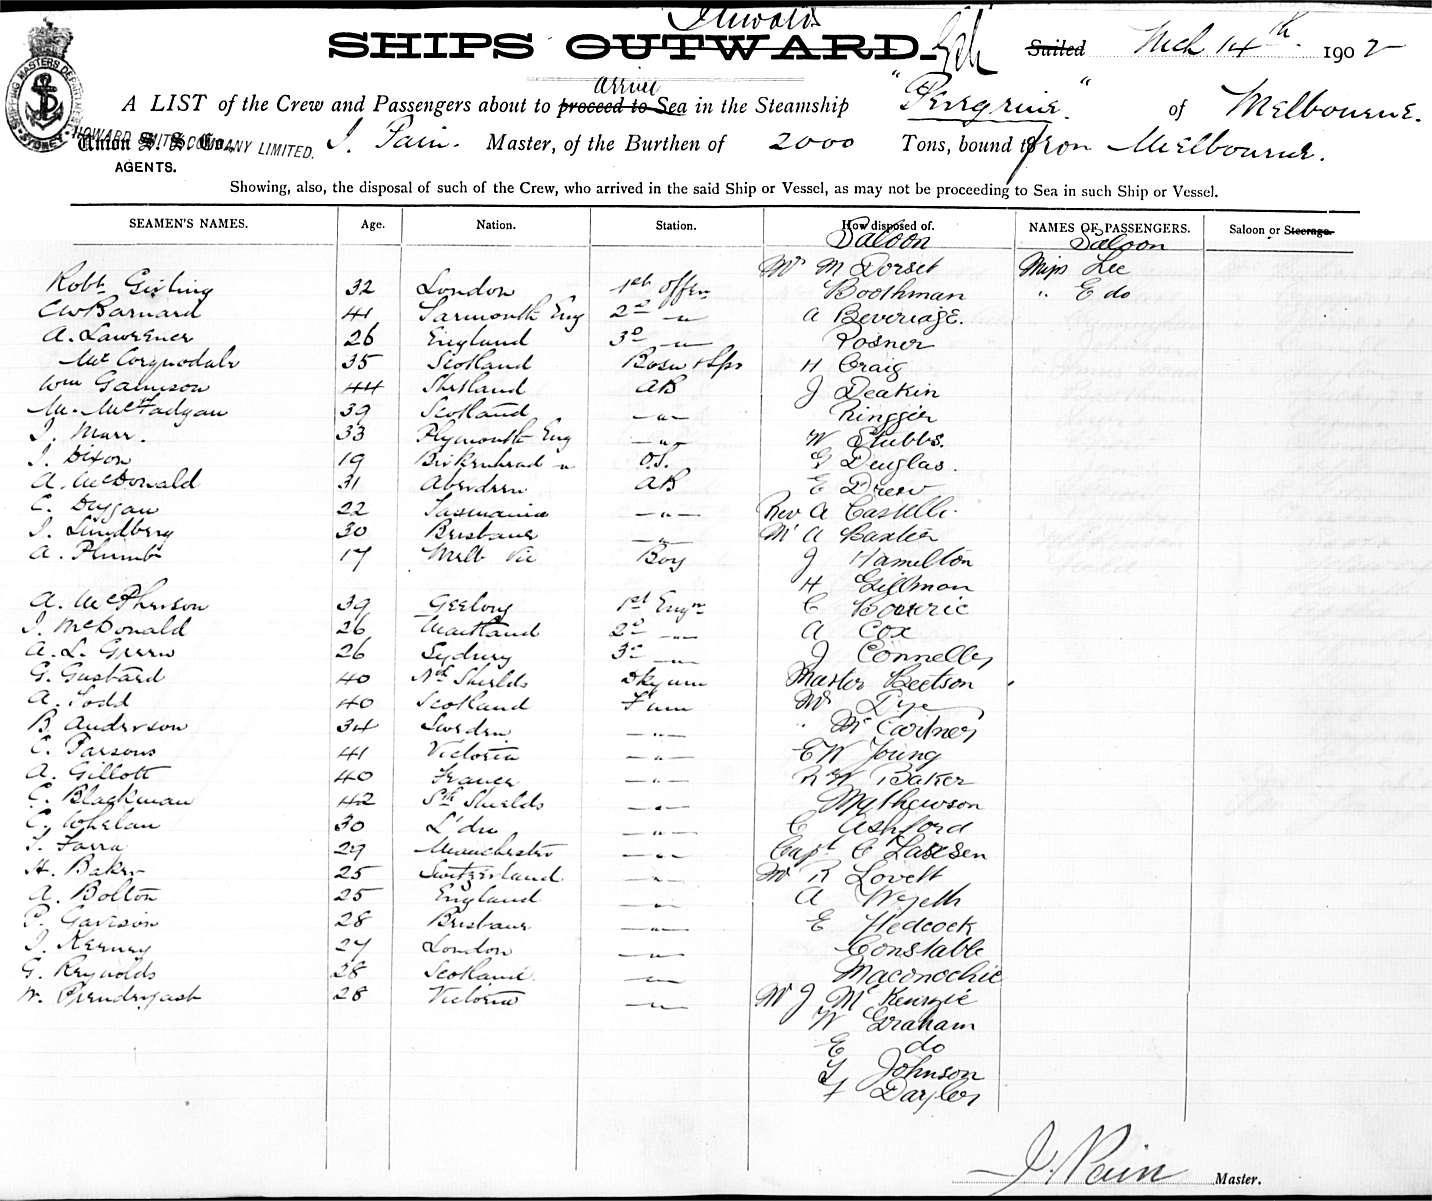 Inwards
SHIPS OUTWARD. Sailed Mch 14th 1902
arrive
A LIST of the Crew and Passengers about to proceed to Sea in the Steamship "Peregrine" of Melbourne.
HOWARD SMITH COMPANY LIMITED.
Union S. S. Co., J. Pain. Master, of the Burthen of 2000 Tons, bound to from Melbourne.
AGENTS.
Showing, also, the disposal of such of the Crew, who arrived in the said Ship or Vessel, as may not be proceeding to Sea in such Ship or Vessel.
SEAMEN'S NAMES. Age. Nation. Station. How disposed of. NAMES OF PASSENGERS. Saloon or Steerage.
Saloon Saloon
Mr M Dorset Miss Lee
Robt Girling 32 London 1st Offr Boothman " E do
CW Barnard 41 Yarmouth Eng 2d " A Beveriage.
A. Lawrence 26 England 3d " Rosner
McCorquodale 35 Scotland Bosn & Lps H Craig
Wm Garrison 44 Shetland AB J Deakin
M. McFadyan 39 Scotland " Ringger
J. Marr. 33 Plymouth Eng " W Stubbs.
J. Dixon 19 Birkenhead " O.S. G Douglas.
A. McDonald 31 Aberdeen AB E Drew
C. Duggan 22 Tasmania " Rev A Castelli.
J. Lindberg 30 Brisbane " Mr A Baxter
A. Plumb 17 Melb Vic Boy J Hamilton
H Gillman
A. McPherson 39 Geelong 1st Engr C
J. McDonald 26 Maitland 2d " A Cox
A. L. Green 26 Sydney 3d " J Connelley
G. Gustard 40 Nth Shields Dkyman Master Beetson
A. Todd 40 Scotland Fman Mr Dye
B. Anderson 34 Sweden " " McCartney
C. Parsons 41 Victoria " E W Young
A. Gillott 40 France " R W Baker
C. Blackman 42 Sth Shields " Mathewson
C. Whelan 30 L'don " C Ashford
T. Farra 29 Manchester " Capt C Larsen
H. Baker 25 Switzerland " Mr R Lovett
A. Bolton 25 England " A Wyeth
P. Garrison 28 Brisbane " E Hedcock
J. Kerney 27 London " Constable
G. Reynolds 28 Scotland " Maconochie
W. Prendergast 28 Victoria " Mr J McKenzie
W Graham
E do
Johnson
Dayley
J. Pain Master.